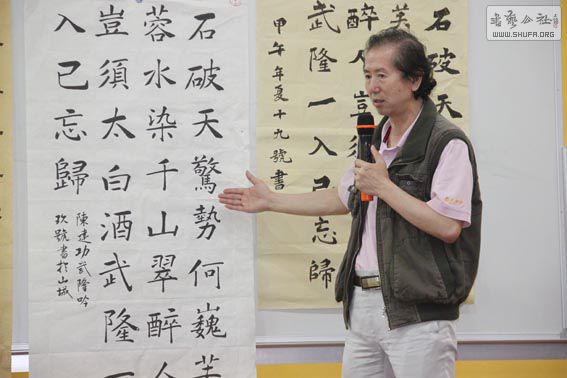 書藝公社
WWW.SHUFA.ORG
石破天
芙
醉人豈須
武隆一入已忘歸
甲午年夏十九號書
石破天驚勢何巍芙
蓉水染千山翠醉人
豈須太白酒武隆一
入已忘歸
陳建功武隆吟
玖號書於山城